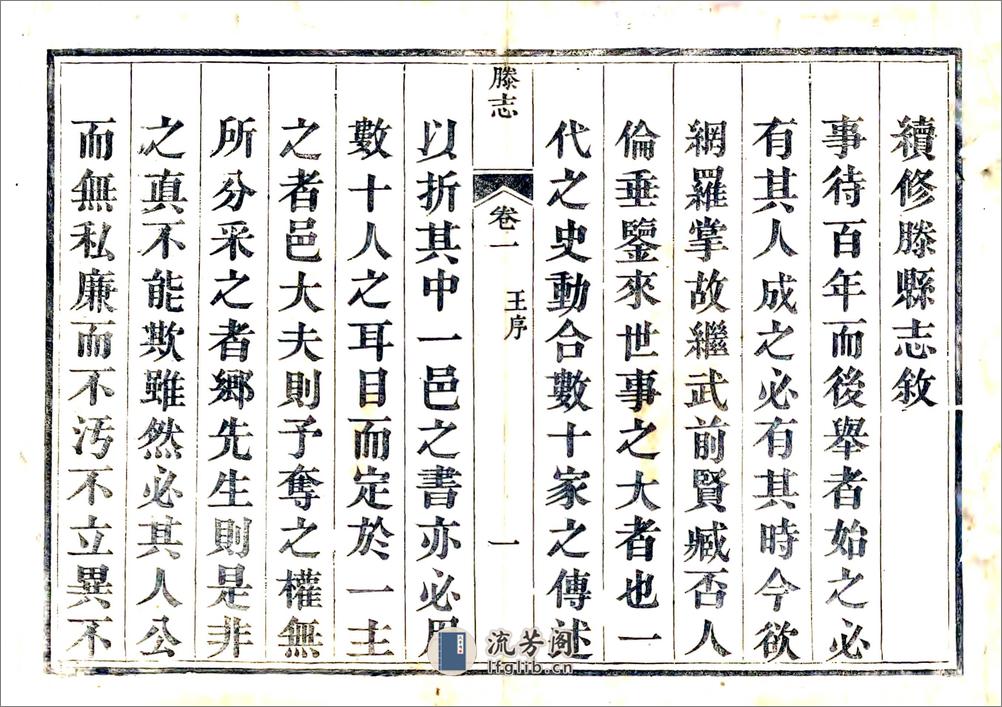 續修滕縣志敘
事待百年而後舉者始之必
有其人成之必有其時今欲
網羅掌故繼武前賢臧否人
倫垂鑒來世事之大者也一
代之史動合數十家之傳述
滕志
卷一
王序
一
以折其中一邑之書亦必用
數十人之耳目而定於一主
之者邑大夫則予奪之權無
所分采之者鄉先生則是非
之真不能欺雖然必其人公
而無私廉而不汚不立異不
流芳阁
lfglib.cn